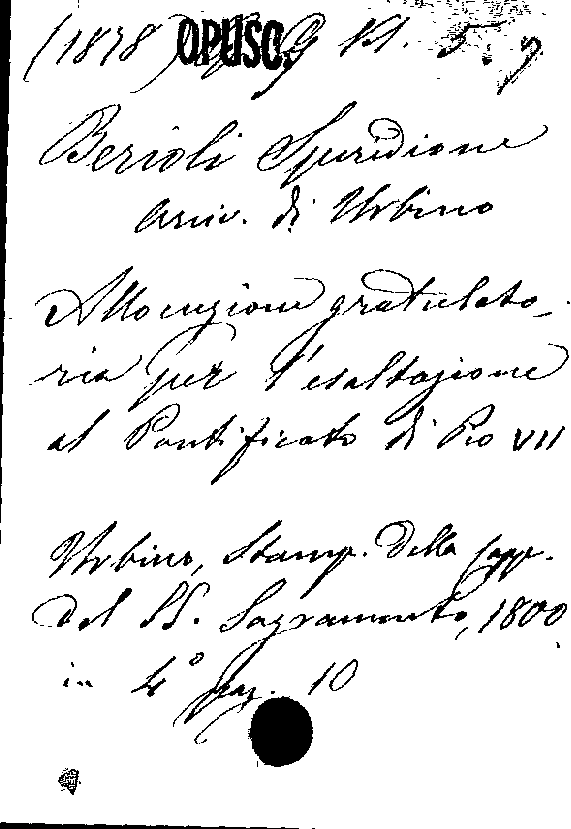 (1878) OPUSC. 5. 7
Berioli Spiridione
Arciv. di Urbino
Allocuzione gratulato-
ria per l'esaltazione
al Pontificato di Pio VII
Urbino, Stamp. della Capp.
del SS. Sagramento, 1800
in 4° pag. 10